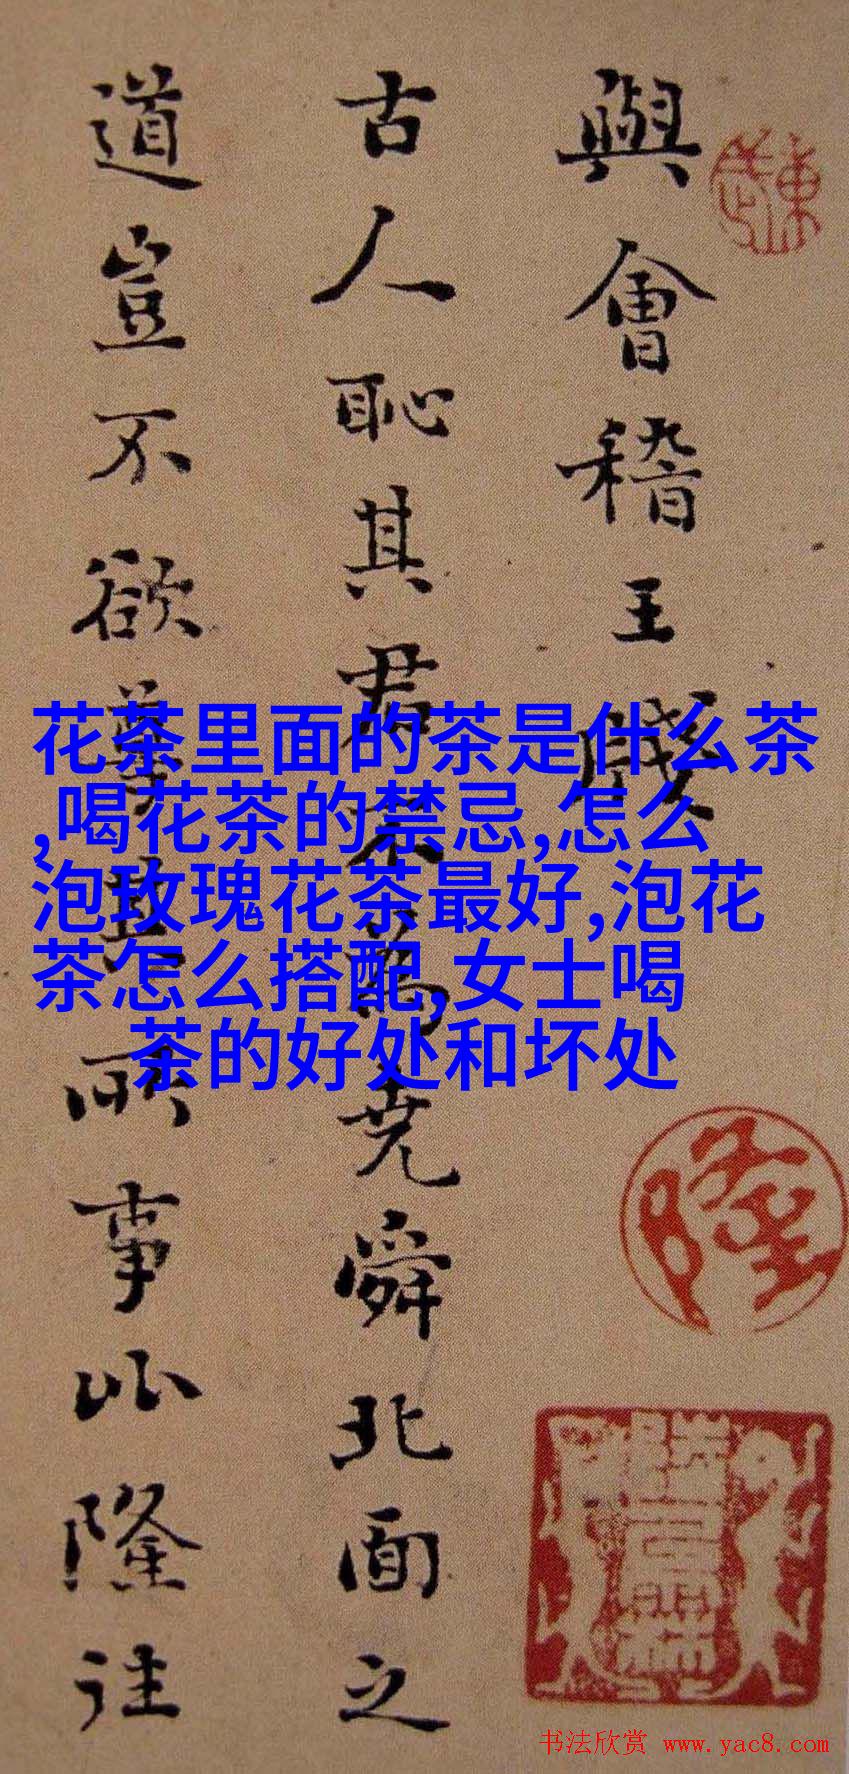 與會稽王牋
古人恥其君不為堯舜北面之
道豈不欲尊其所事比隆往
花茶里面的茶是什么茶
,喝花茶的禁忌,怎么
泡玫瑰花茶最好,泡花
茶怎么搭配,女士喝
茶的好处和坏处
隆
书法欣赏 www.yac8.com